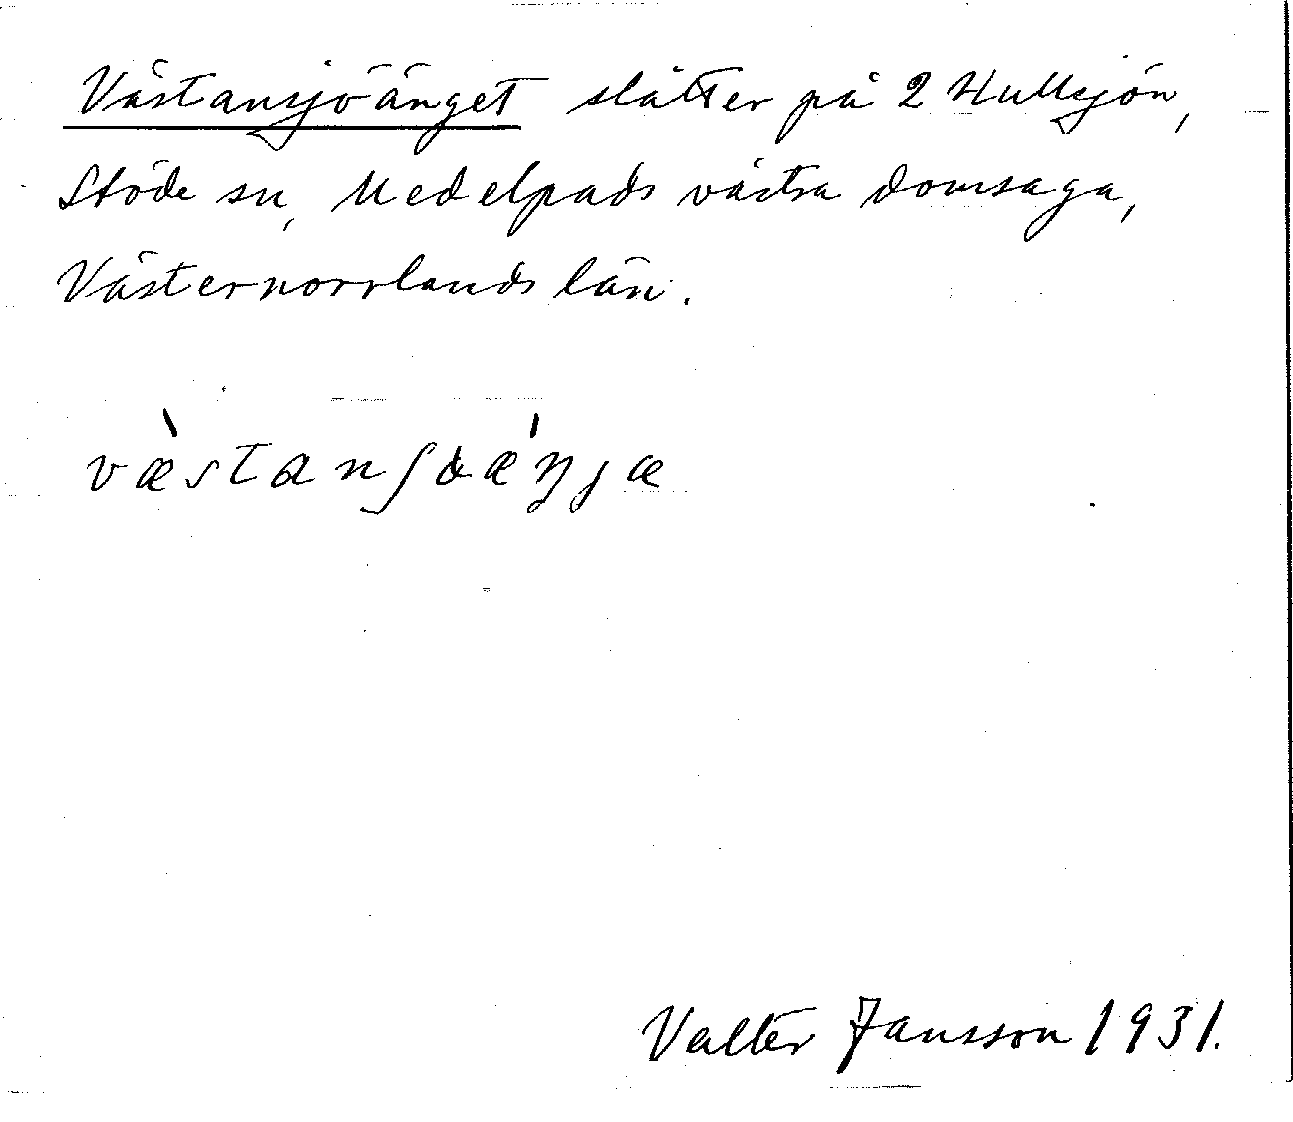 Västansjöänget slåtter på 2 Hullsjön,
Stöde sn, Medelpads västra domsaga,
Västernorrlands län.
væ̀stanʃɷǽŋjæ
Valter Jansson 1931.